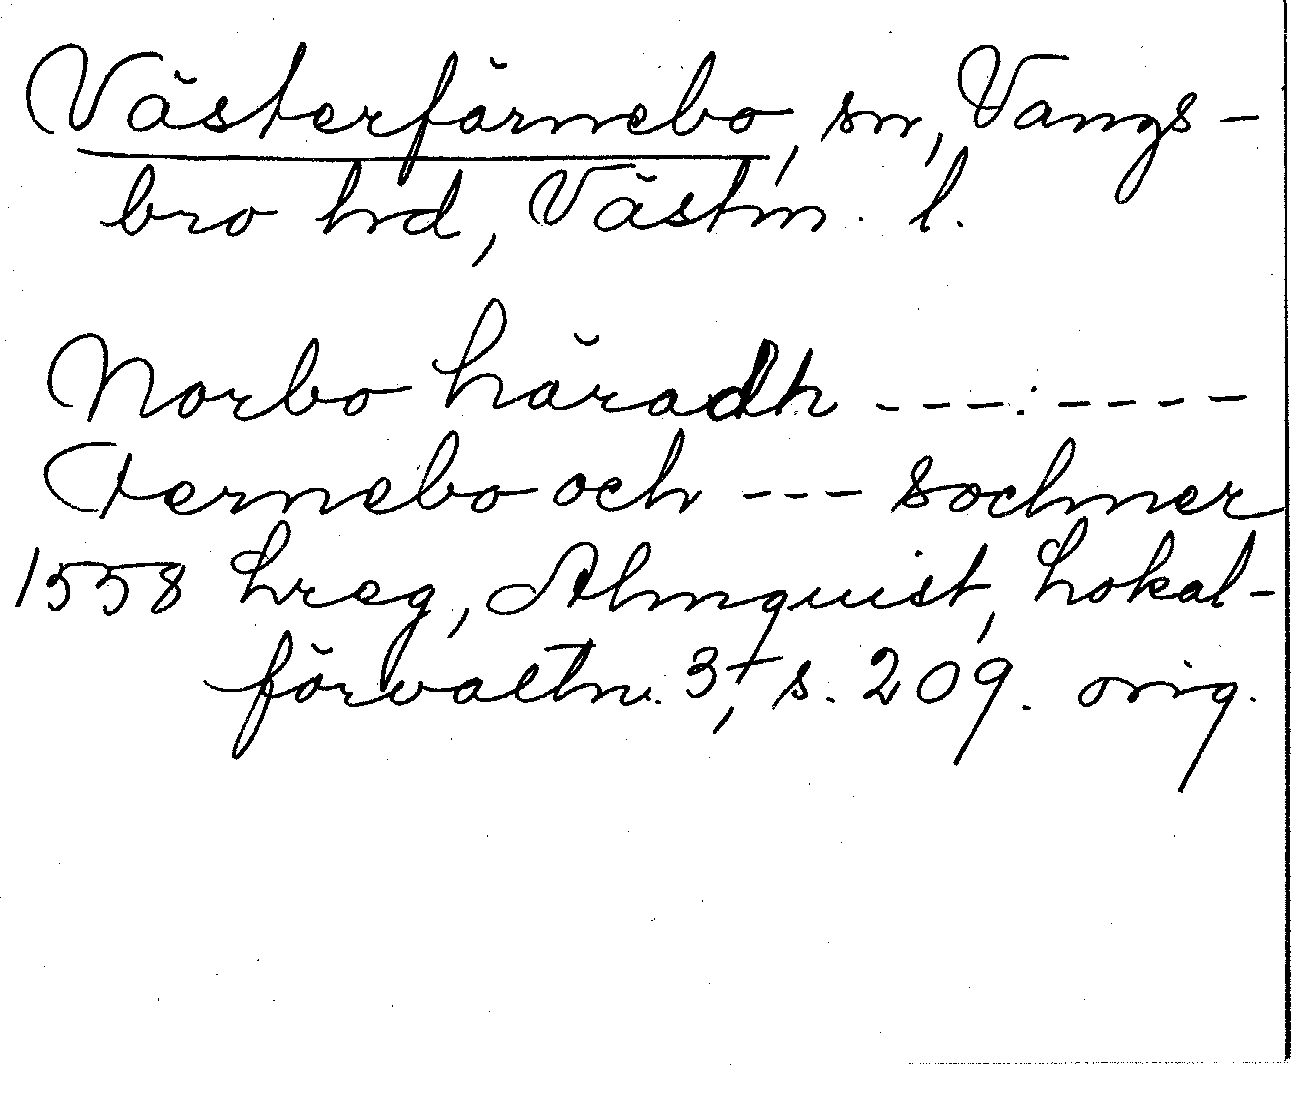 Västerfärnebo, sn, Vangs-
bro hrd, Västm. l.
Norbo häradh ---:----
Fernebo och --- sochner
1558 hreg, Almquist, Lokal-
förvaltn. 3, s. 209. orig.